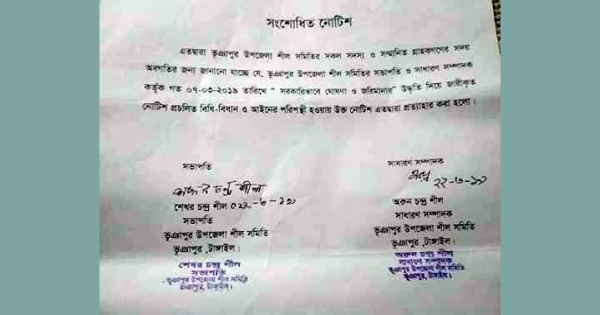 সংশোধিত নোটিশ
এতদ্বারা ভূঞাপুর উপজেলা শীল সমিতির সকল সদস্য ও সম্মানিত গ্রাহকগণের সদয়
অবগতির জন্য জানানো যাচ্ছে যে, ভূঞাপুর উপজেলা শীল সমিতির সভাপতি ও সাধারণ সম্পাদক
কর্তৃক গত ০৭-০৩-২০১৯ তারিখে " সরকারিভাবে ঘোষণা ও জরিমানার" উদ্ধৃতি দিয়ে জারীকৃত
নোটিশ প্রচলিত বিধি-বিধান ও আইনের পরিপন্থী হওয়ায় উক্ত নোটিশ এতদ্বারা প্রত্যাহার করা হলো।
সভাপতি
শেখর চন্দ্র শীল
শেখর চন্দ্র শীল
সভাপতি
ভূঞাপুর উপজেলা শীল সমিতি
ভূঞাপুর, টাঙ্গাইল।
শেখর চন্দ্র শীল
সভাপতি
ভূঞাপুর উপজেলা শীল সমিতি
ভূঞাপুর, টাঙ্গাইল।
সাধারণ সম্পাদক
২২-৩-১৯
অরুন চন্দ্র শীল
সাধারণ সম্পাদক
ভূঞাপুর উপজেলা শীল সমিতি
ভূঞাপুর, টাঙ্গাইল।
অরুন চন্দ্র শীল
সাধারণ সম্পাদক
ভূঞাপুর উপজেলা শীল সমিতি
ভূঞাপুর, টাঙ্গাইল।